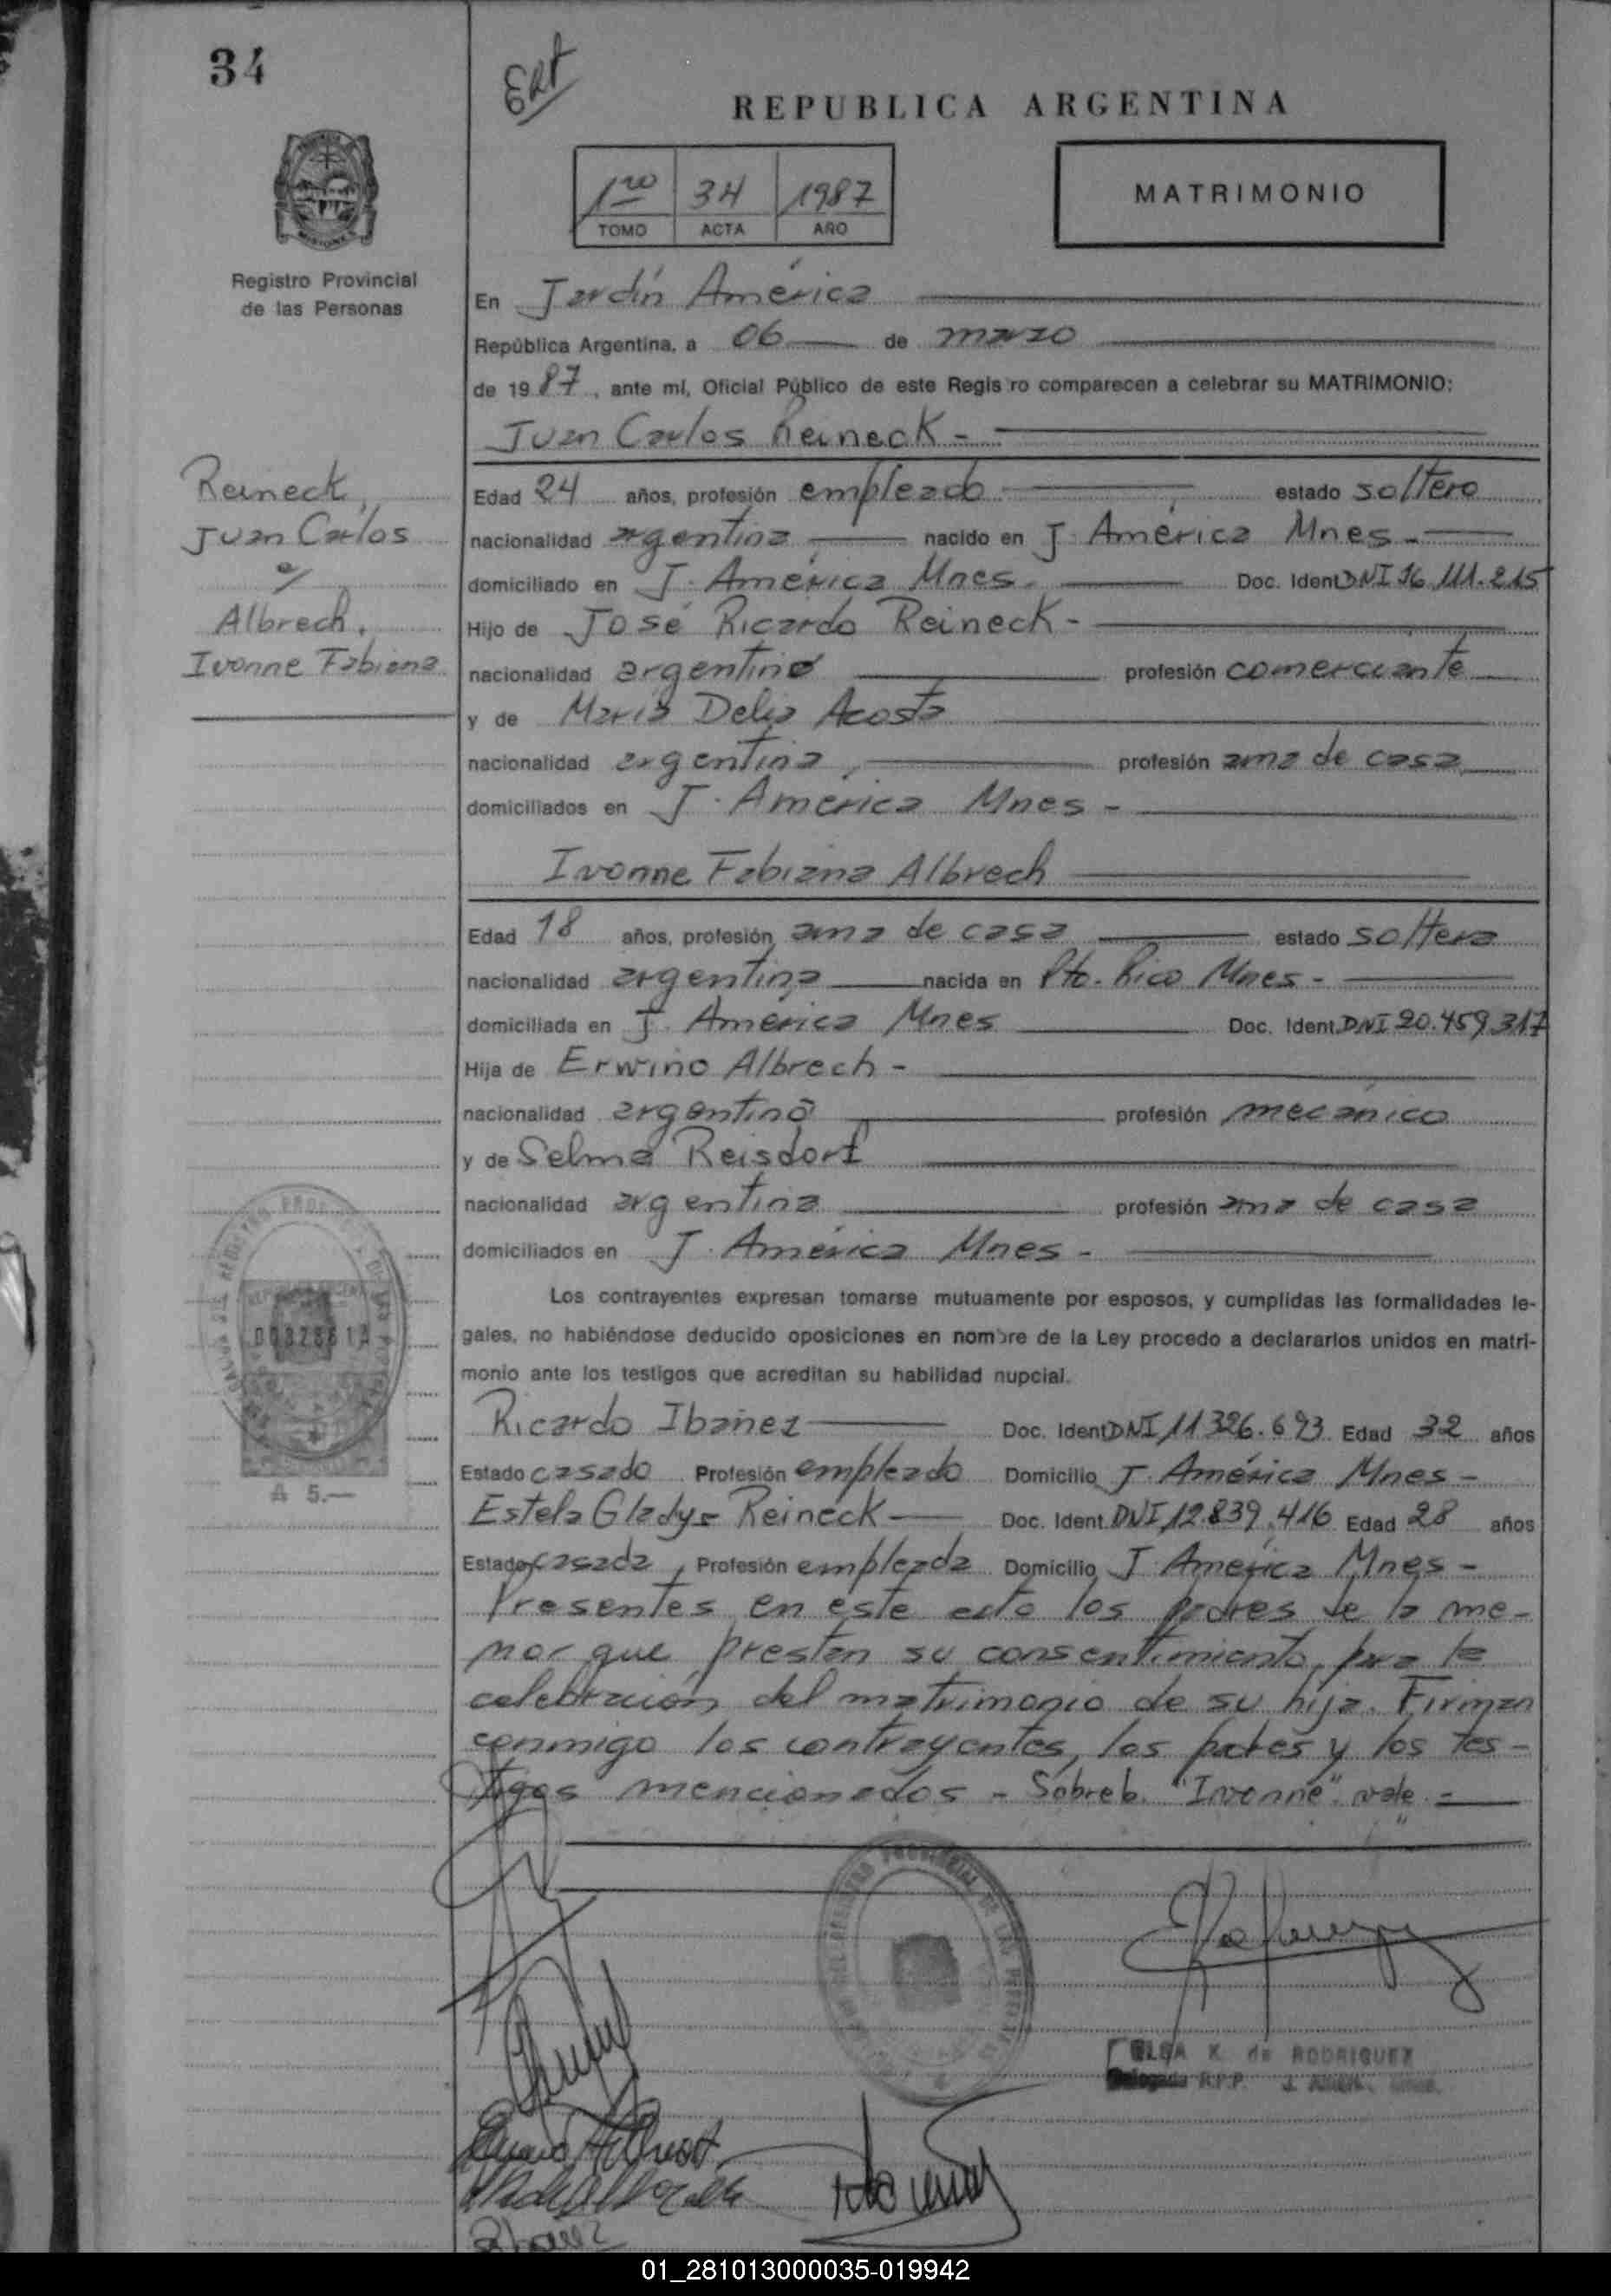 34
Ext
REPUBLICA ARGENTINA
1ro 34 1987
TOMO ACTA AÑO
MATRIMONIO
Registro Provincial
de las Personas
En Jardín América
República Argentina, a 06 de marzo
de 19 87, ante mí, Oficial Público de este Regis ro comparecen a celebrar su MATRIMONIO:
Juan Carlos Reineck -
Reineck,
Juan Carlos
c/
Albrech,
Ivonne Fabiana
Edad 24 años, profesión empleado estado soltero
nacionalidad argentina nacido en J. América Mnes -
domiciliado en J. América Mnes. Doc. Ident. DNI 16.111.215
Hijo de José Ricardo Reineck -
nacionalidad argentino profesión comerciante
y de María Delia Acosta
nacionalidad argentina, profesión ama de casa
domiciliados en J. América Mnes -
Ivonne Fabiana Albrech
Edad 18 años, profesión ama de casa estado soltera
nacionalidad argentina nacida en Pto. Rico Mnes -
domiciliada en J. América Mnes Doc. Ident. DNI 20.459.317
Hija de Erwino Albrech -
nacionalidad argentino profesión mecánico
y de Selma Reisdorf
nacionalidad argentina profesión ama de casa
domiciliados en J. América Mnes -
Los contrayentes expresan tomarse mutuamente por esposos, y cumplidas las formalidades le-
gales, no habiéndose deducido oposiciones en nombre de la Ley procedo a declararlos unidos en matri-
monio ante los testigos que acreditan su habilidad nupcial.
Ricardo Ibañez Doc. Ident. DNI 11.326.693 Edad 32 años
Estado casado Profesión empleado Domicilio J. América Mnes -
Estela Gladys Reineck Doc. Ident. DNI 12.839.416 Edad 28 años
Estado casada, Profesión empleada Domicilio J. América Mnes -
Presentes en este acto los padres de la me-
nor que prestan su consentimiento para la
celebración del matrimonio de su hija. Firman
conmigo los contrayentes, los padres y los tes-
tigos mencionados - Sobreb. "Ivonne" vale -
A 5.—
ELSA K. de RODRIGUEZ
Delegada R.P.P.
01_281013000035-019942